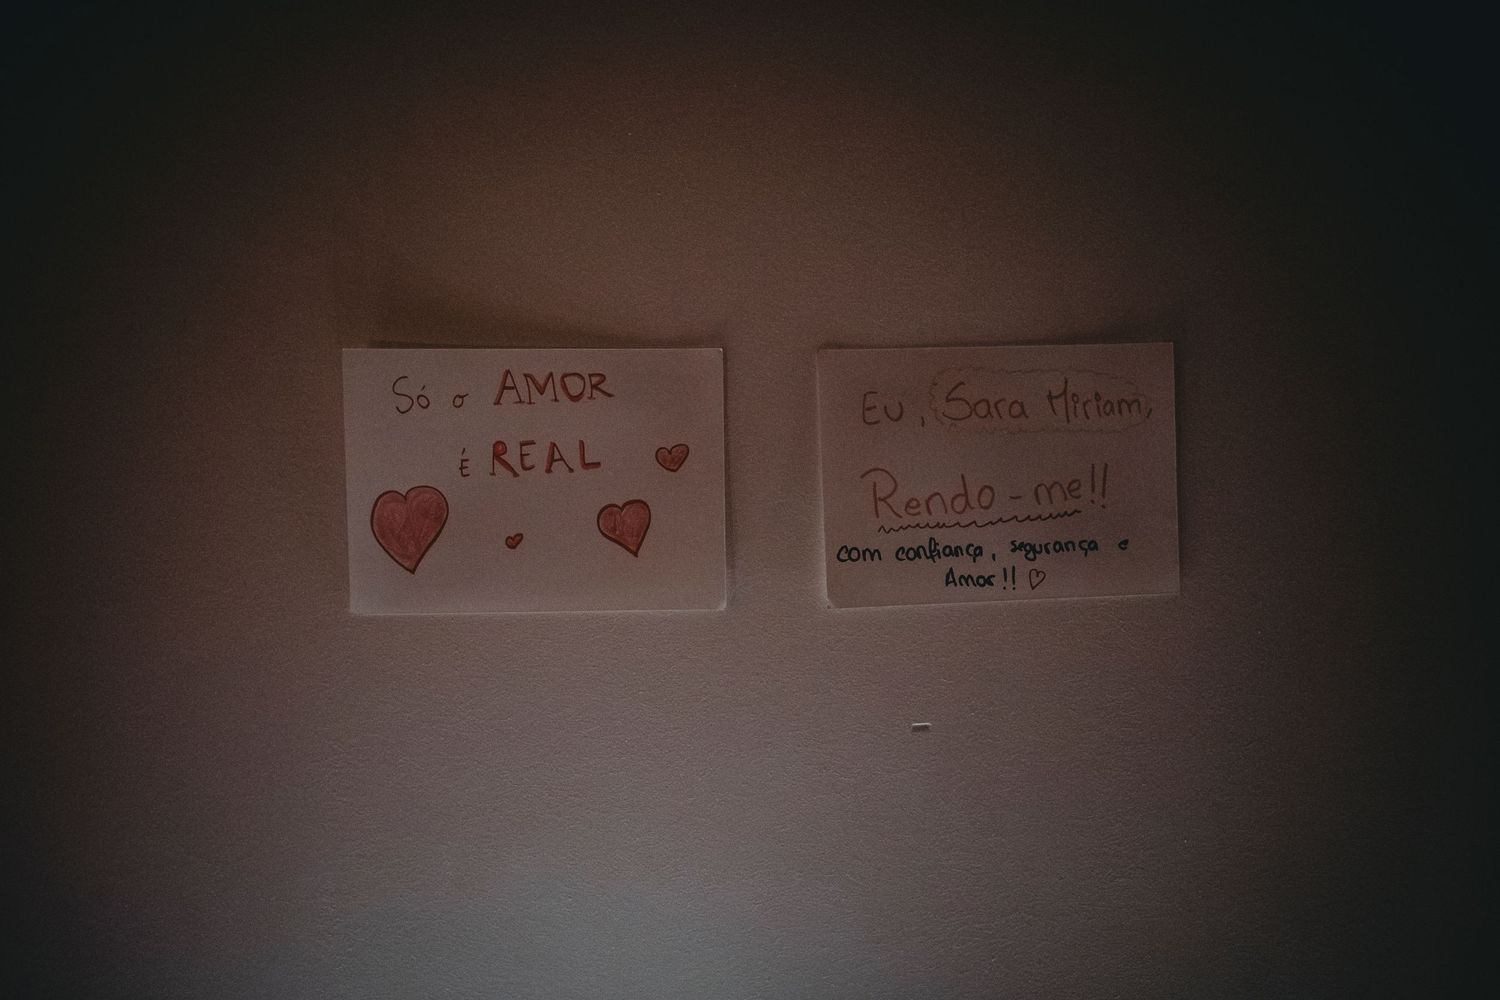 Só o AMOR
é REAL
Eu, Sara Miriam,
Rendo-me!!
com confiança, segurança e
Amor!!